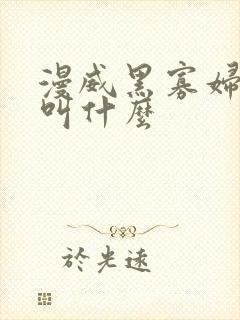 漫威黑寡婦
叫什麼
於光遠